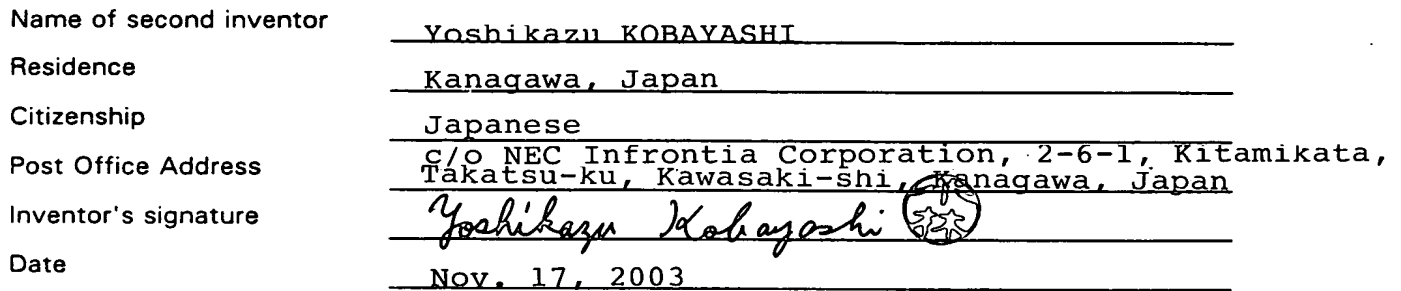 Name of second inventor Yoshikazu KOBAYASHI
Residence Kanagawa, Japan
Citizenship Japanese
Post Office Address c/o NEC Infrontia Corporation, 2-6-1, Kitamikata,
Takatsu-ku, Kawasaki-shi, Kanagawa, Japan
Inventor's signature Yoshikazu Kobayashi
Date Nov. 17, 2003